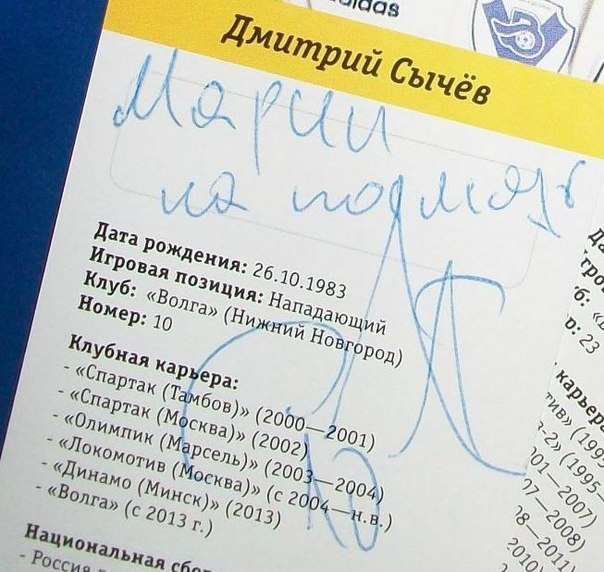 adidas
Дмитрий Сычёв
Марии
на память
Дата рождения: 26.10.1983
Игровая позиция: Нападающий
Клуб: «Волга» (Нижний Новгород)
Номер: 10
Клубная карьера:
- «Спартак (Тамбов)» (2000—2001)
- «Спартак (Москва)» (2002)
- «Олимпик (Марсель)» (2003—2004)
- «Локомотив (Москва)» (с 2004—н.в.)
- «Динамо (Минск)» (2013)
- «Волга» (с 2013 г.)
10
Национальная сбо
- Россия
: 23
карьера
(1995—
01—2007)
07—2008)
08—2011)
2010)